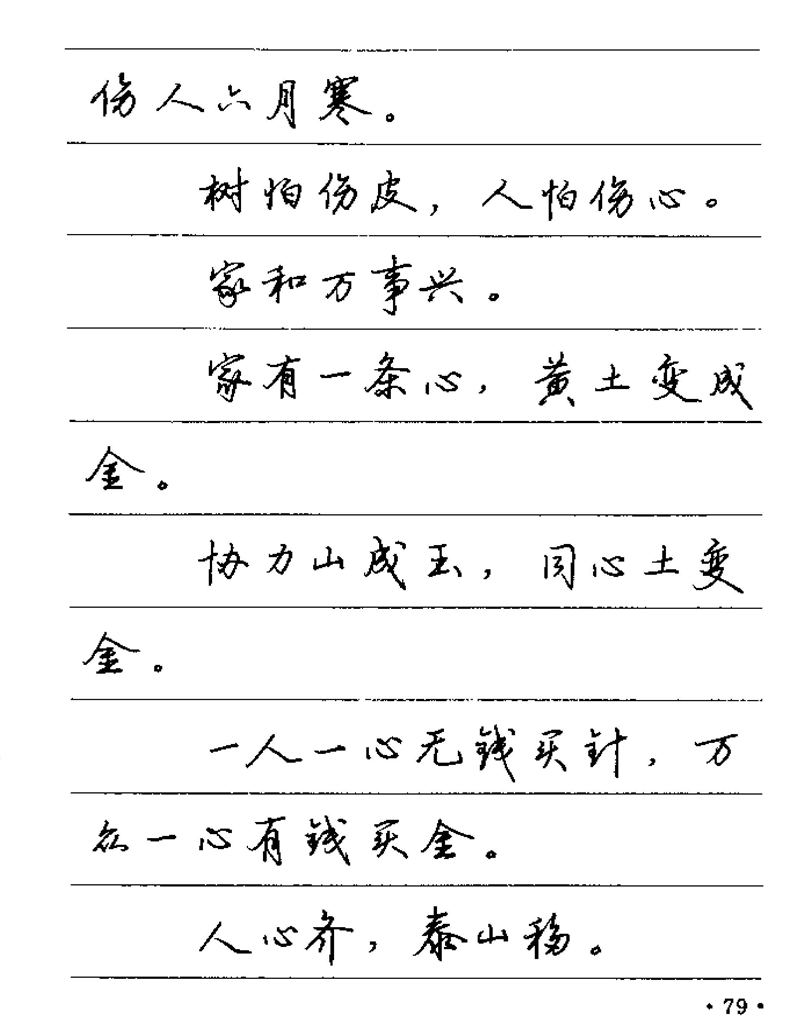 伤人六月寒。
树怕伤皮，人怕伤心。
家和万事兴。
家有一条心，黄土变成
金。
协力山成玉，同心土变
金。
一人一心无钱买针，万
众一心有钱买金。
人心齐，泰山移。
·79·